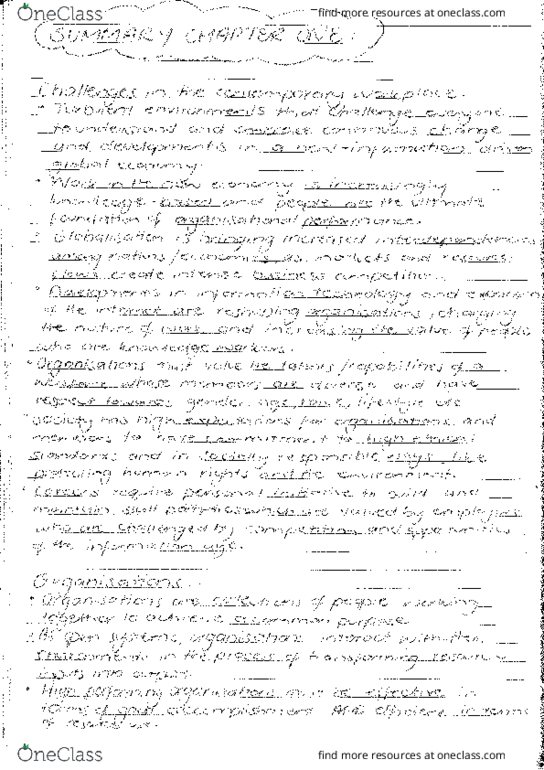 OneClass
find more resources at oneclass.com
SUMMARY CHAPTER ONE:
Challenges in the contemporary workplace.
• Turbulent environments that challenge everyone
to understand and continuous change
and developments in a new-information driven
global economy.
• Work in the new economy is increasingly
knowledge-based and people are the ultimate
foundation of organisational performance.
Globalisation is bringing increased interdependencies
among nations/economies as markets and resource
flows create intense business competition.
• Developments in information technology and expansion
of the internet are reshaping organisations, changing
the nature of work and increasing the value of people
who are knowledge workers.
• Organisations must value the talents/capabilities of a
workforce whose members are diverse and have
respect towards gender, age, race, lifestyle etc
• Society has high expectations for organisations and
members to have commitment to high ethical
standards and in socially responsible ways, like
protecting human rights and the environment.
• Careers require personal initiative to build and
maintain skill portfolios which are valued by employers
who are challenged by competition and opportunities
of the information age.
Organisations:
• Organisations are collections of people working
together to achieve a common purpose
• As open systems, organisations interact with their
environments in the process of transforming resource
inputs into outputs.
• High performing organisations must be effective in
terms of goal accomplishment AND efficient in terms
of resource use.
OneClass
find more resources at oneclass.com